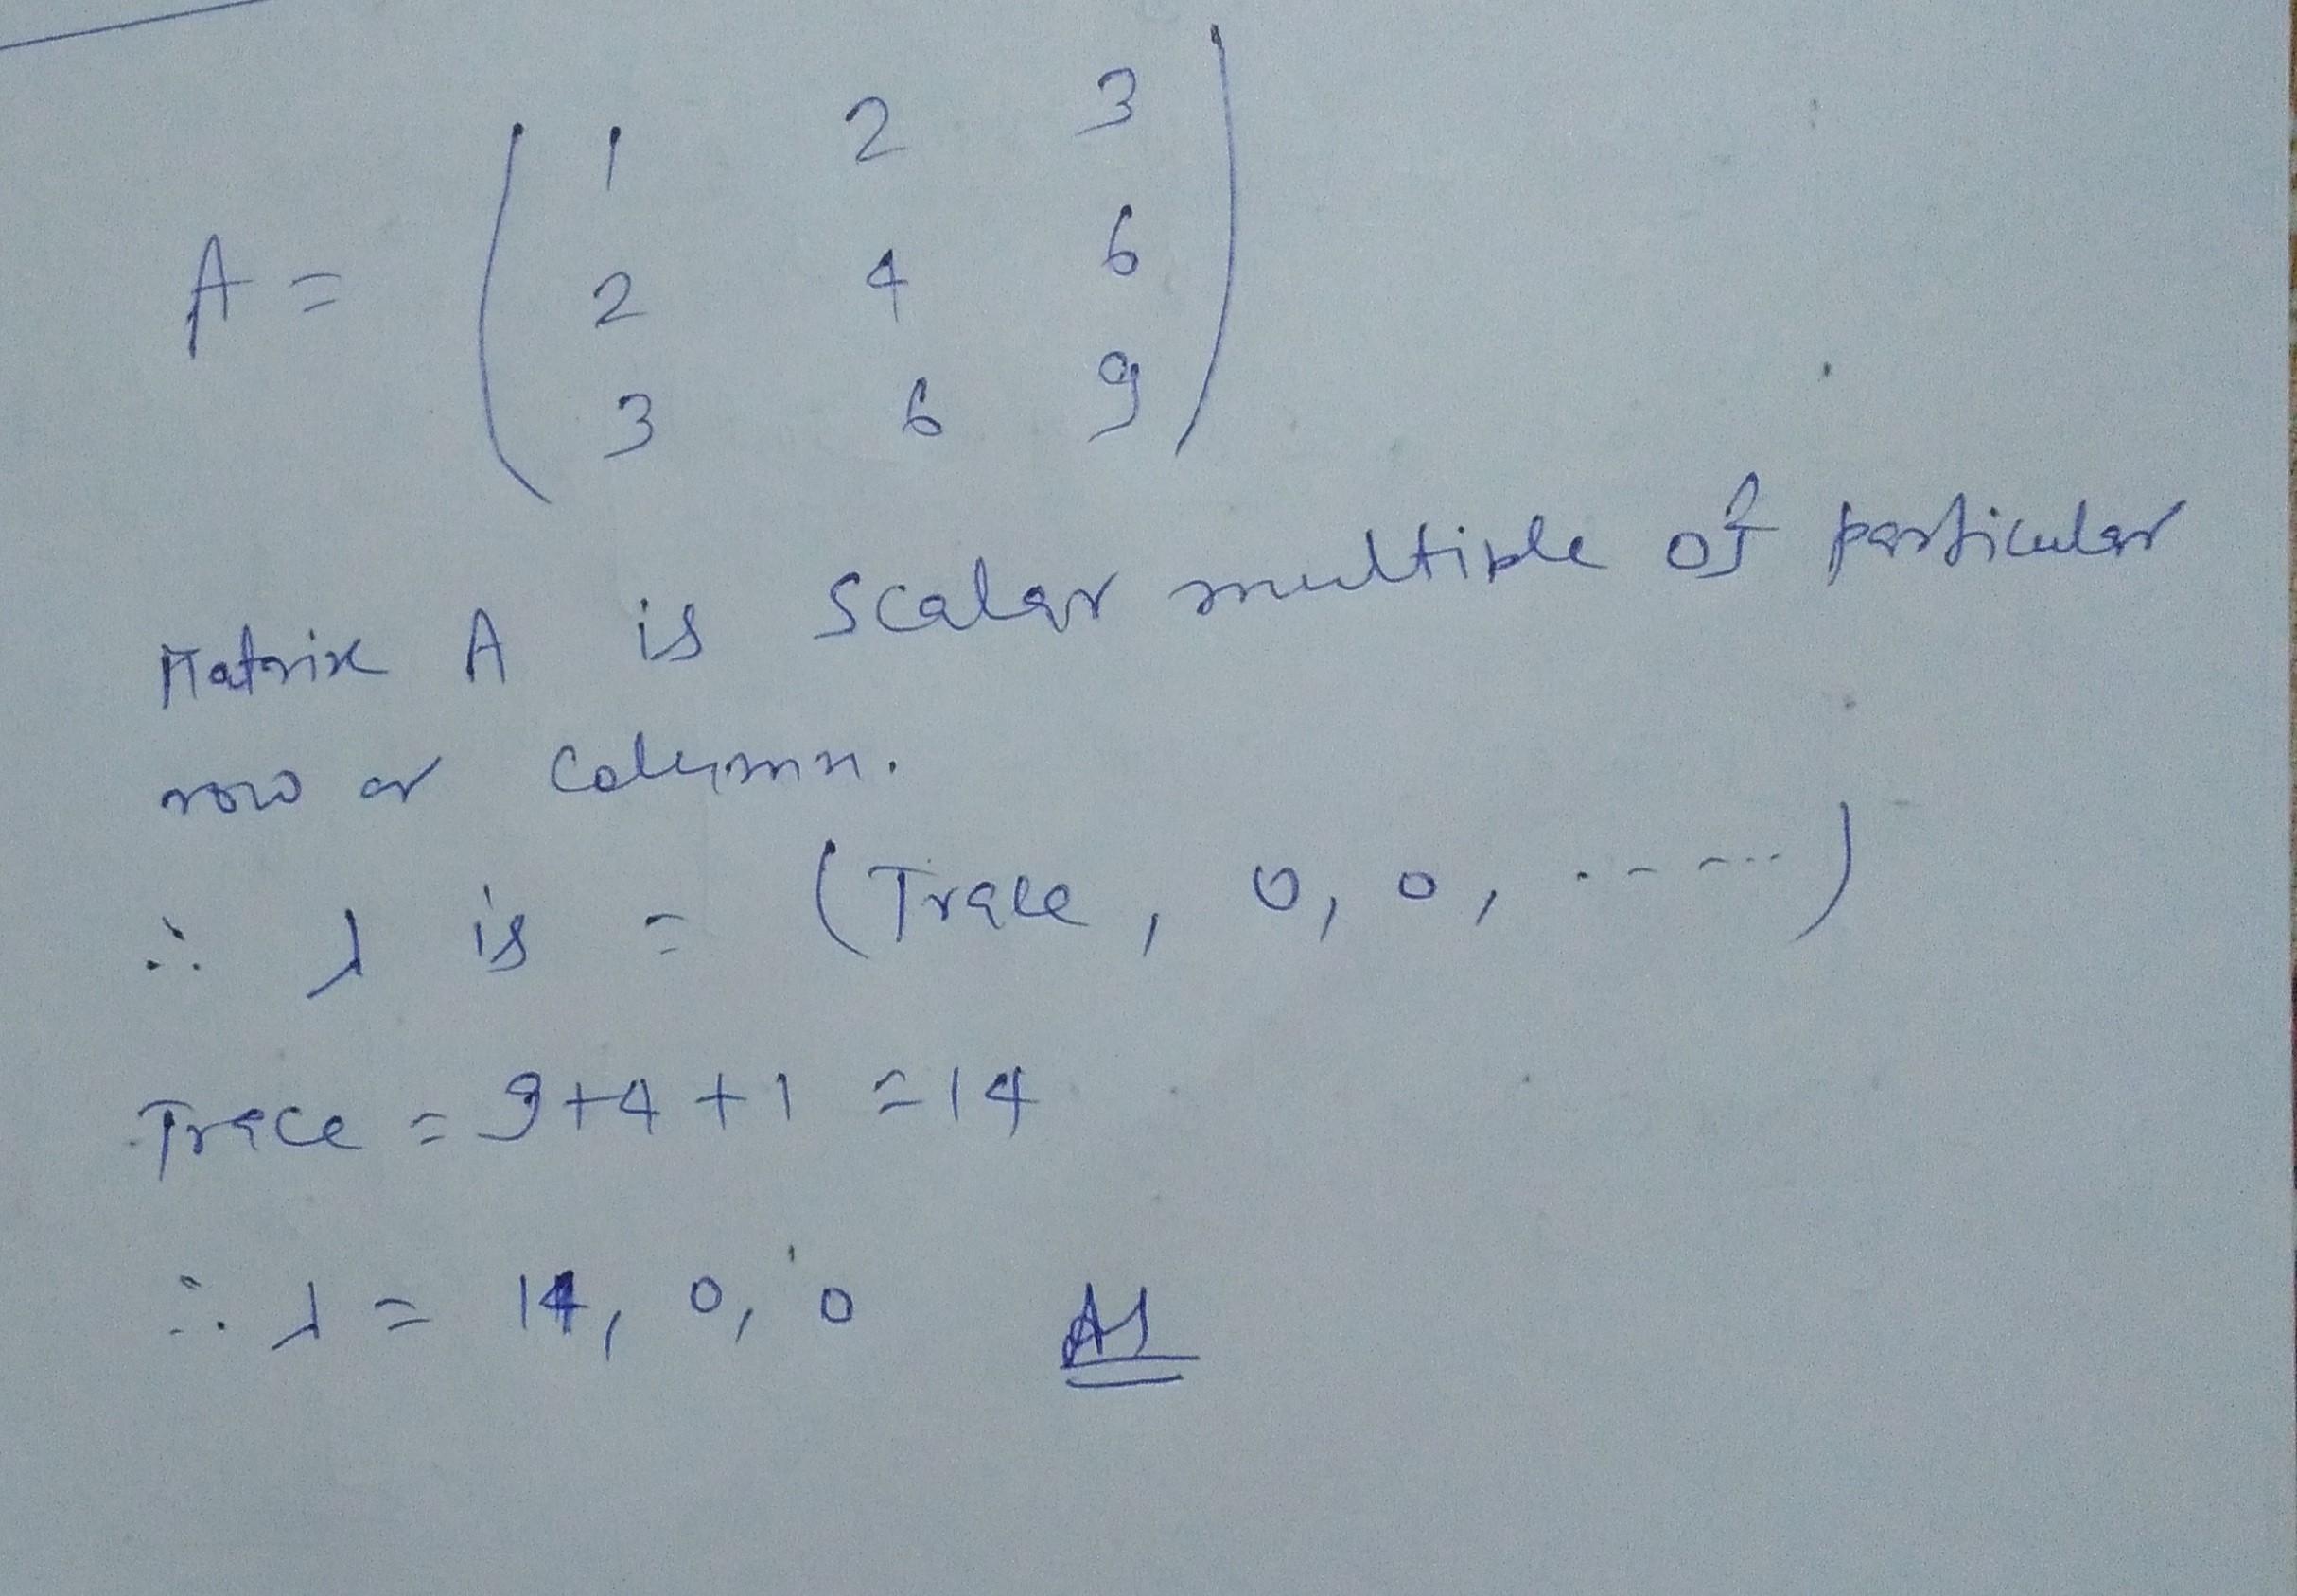 1 2 3
A = 2 4 6
3 6 9
Matrix A is scalar multiple of particular
row or column.
∴ λ is = (Trace, 0, 0, -----)
Trace = 9+4+1 = 14
∴ λ = 14, 0, 0